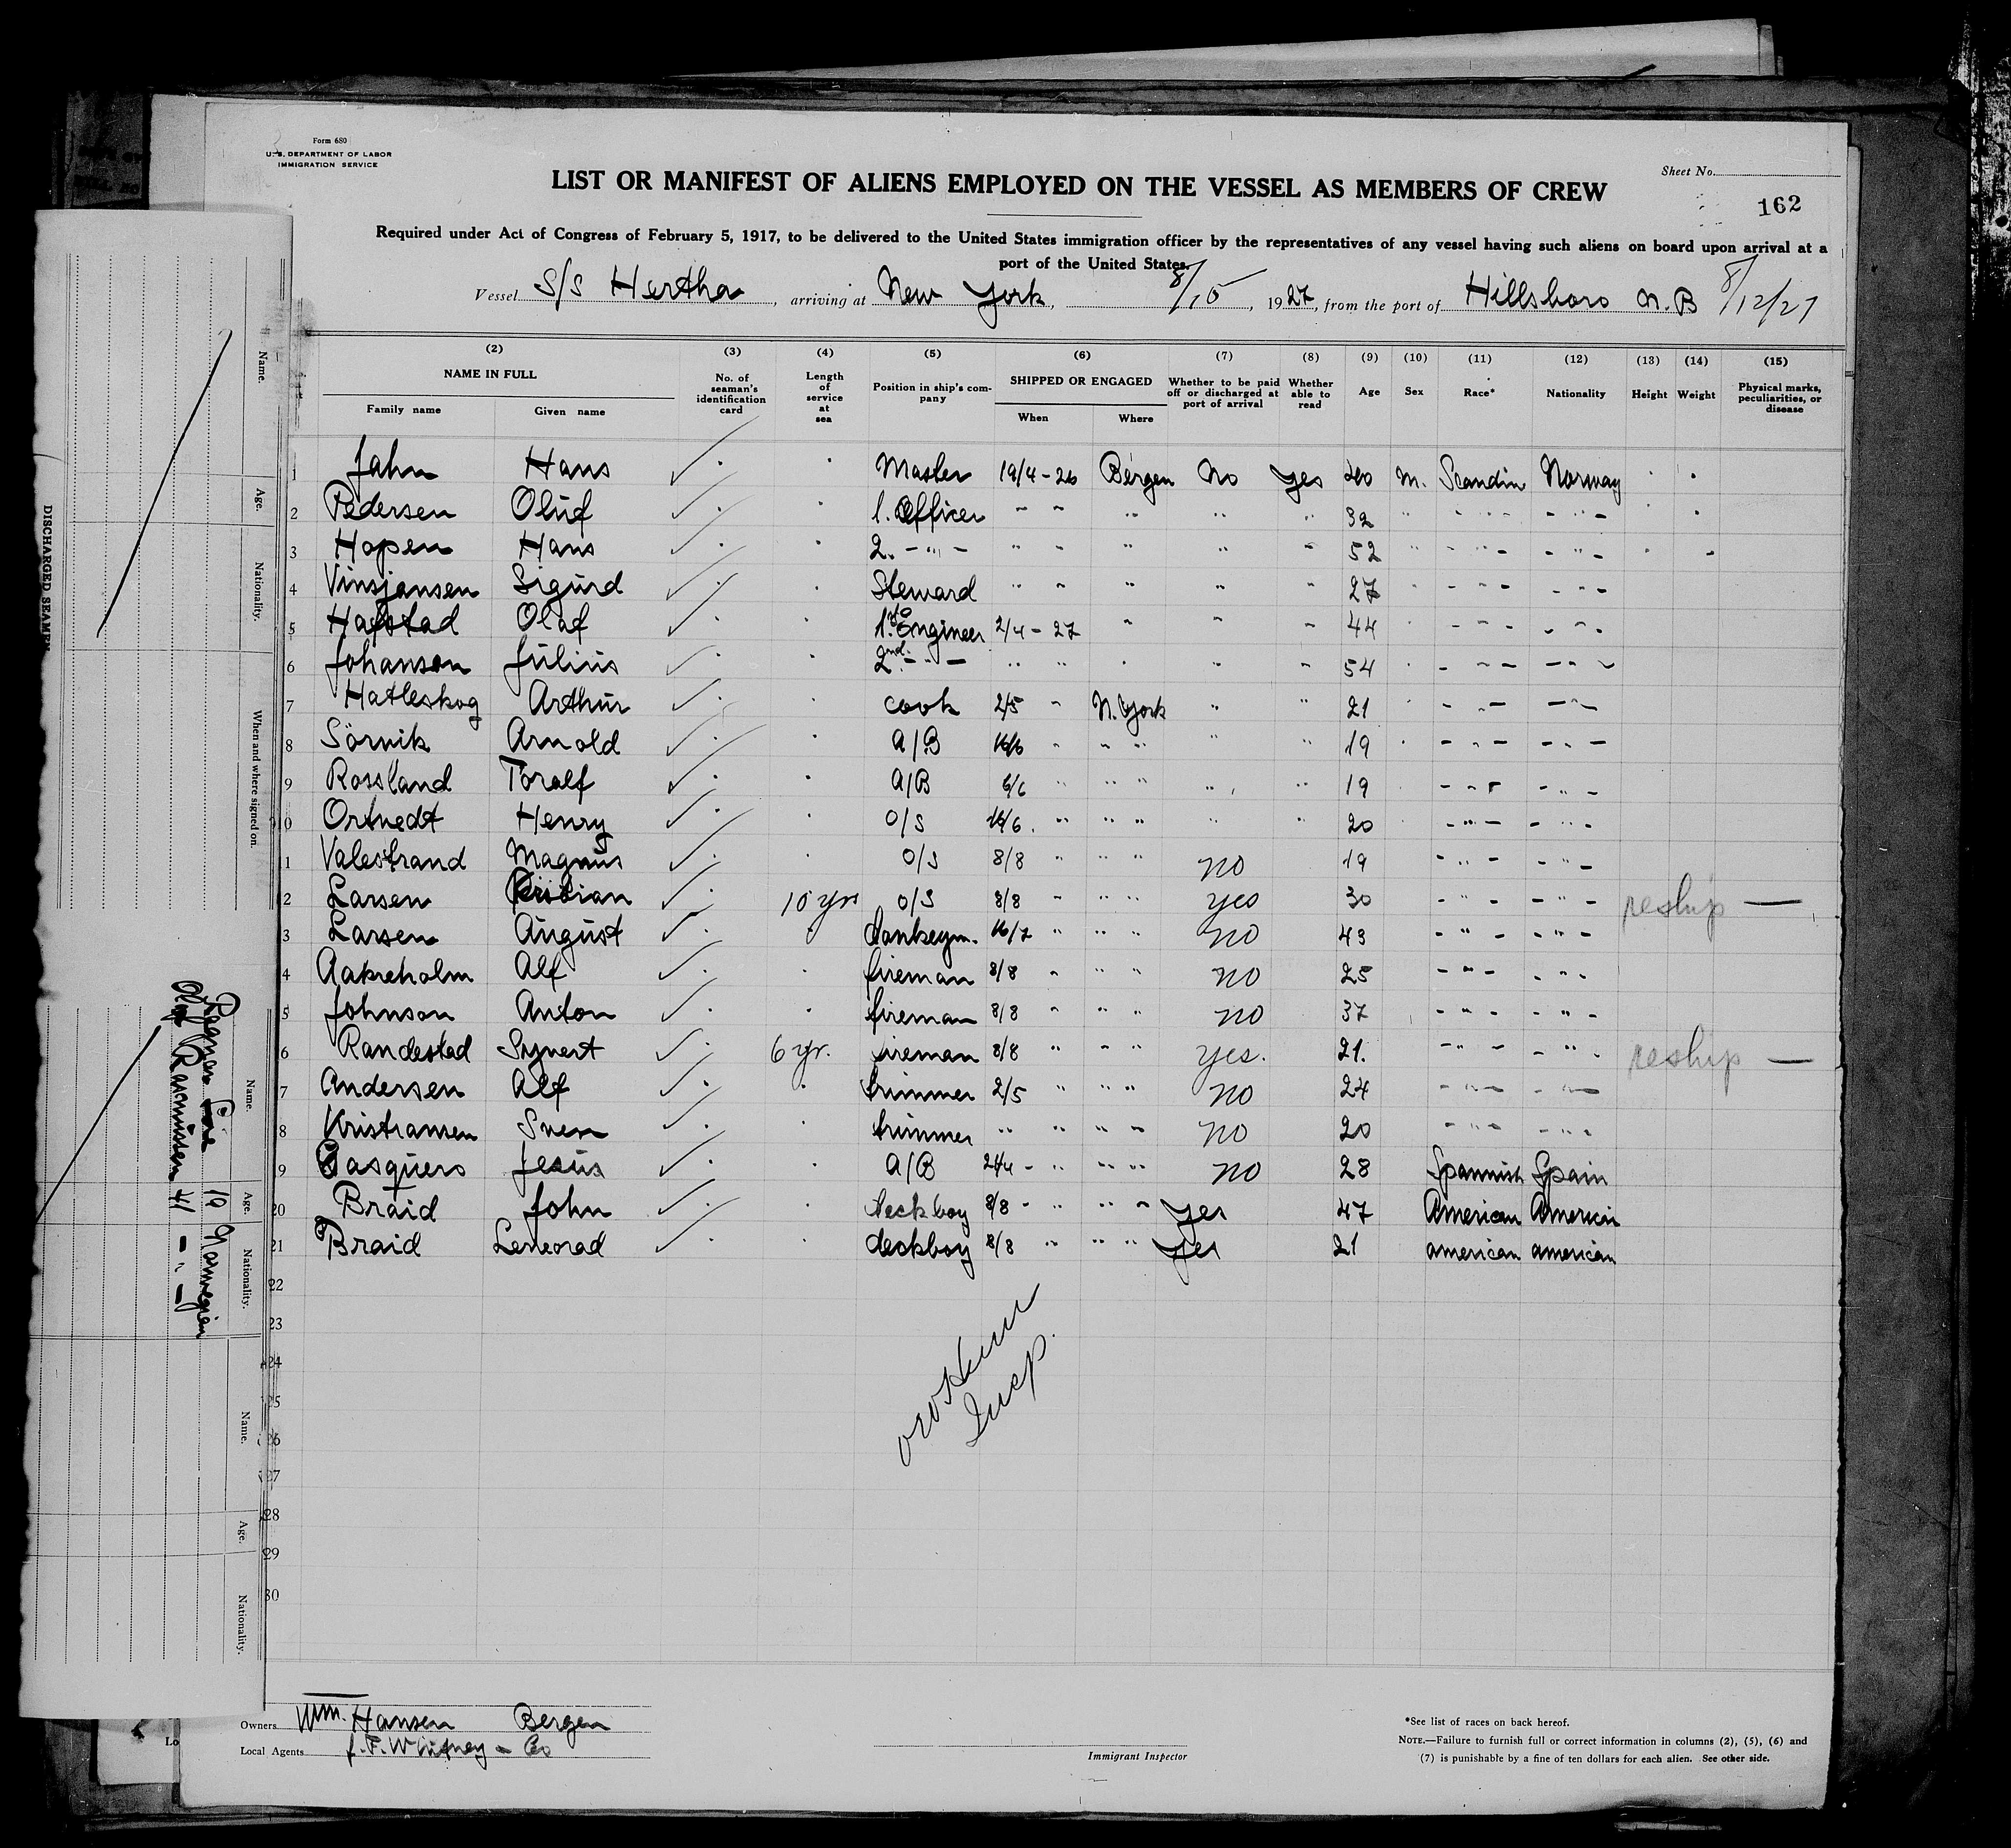 Form 680
U. S. DEPARTMENT OF LABOR
IMMIGRATION SERVICE
Sheet No.
LIST OR MANIFEST OF ALIENS EMPLOYED ON THE VESSEL AS MEMBERS OF CREW
162
Required under Act of Congress of February 5, 1917, to be delivered to the United States immigration officer by the representatives of any vessel having such aliens on board upon arrival at a
port of the United States.
Vessel S/S Hertha, arriving at New York, 8/15, 1927, from the port of Hillsboro N.B 8/12/27
(2) (3) (4) (5) (6) (7) (8) (9) (10) (11) (12) (13) (14) (15)
NAME IN FULL No. of seaman's identification card Length of service at sea Position in ship's company SHIPPED OR ENGAGED Whether to be paid off or discharged at port of arrival Whether able to read Age Sex Race* Nationality Height Weight Physical marks, peculiarities, or disease
Family name Given name When Where
1 Jahn Hans Master 19/4-26 Bergen No yes 40 M. Scandin Norway
2 Pedersen Oluf 1. Officer " " " " " 32 " " "
3 Hopen Hans 2. " " " " " " 52 " " "
4 Vinsjansen Sigurd Steward " " " " " 27 " "
5 Hafstad Olaf 1. Engineer 2/4-27 " " " 44 " "
6 Johanson Julius 2nd " " " " " " 54 " "
7 Hatleskog Arthur cook 2/5 " N. York " " 21 " "
8 Sörvik Arnold A/B 16/6 " " " " " 19 " "
9 Rossland Toralf A/B 6/6 " " " " " 19 " "
10 Ortvedt Henry O/S 16/6. " " " " " 20 " "
11 Valestrand Magnus O/S 8/8 " " " no 19 " "
12 Larsen Kristian 10 yrs O/S 8/8 " " " yes 30 " " reship —
13 Larsen August donkeym. 16/7 " " " no 43 " "
14 Aakreholm Alf fireman 8/8 " " " no 25 " "
15 Johnson Anton fireman 8/8 " " " no 37 " "
16 Randestad Synert 6 yr. fireman 8/8 " " " yes. 21. " " reship —
17 Andersen Alf trimmer 2/5 " " " no 24 " "
18 Kristiansen Sven trimmer " " " " no 20 " "
19 Jesus A/B 24/4 - " " " no 28 Spannish Spain
20 Braid John deckboy 8/8 - " " " yes 47 American American
21 Braid deckboy 8/8 " " " yes 21 american american
22
23
24
25
26
27
28
29
30
Insp.
Owners Wm. Hansen Bergen
Local Agents J. F. Whitney - Co
Immigrant Inspector
*See list of races on back hereof.
NOTE.—Failure to furnish full or correct information in columns (2), (5), (6) and
(7) is punishable by a fine of ten dollars for each alien. See other side.
DISCHARGED SEAMEN
Name. Age. Nationality. When and where signed on.
Name. Age. Nationality.
Ragnar 19 Norwegian
Olaf Rasmussen 41 - " -
Name. Age. Nationality.